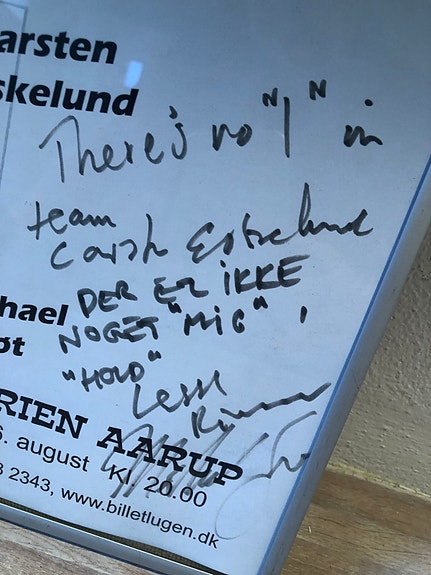 arsten
skelund
There's no "I" in
team
Carsten Eskelund
DER ER IKKE
hael
NOGET "MIG" I
øt
"HOLD"
Lasse
Rimmer
RIEN AARUP
6. august Kl. 20.00
3 2343, www.billetlugen.dk